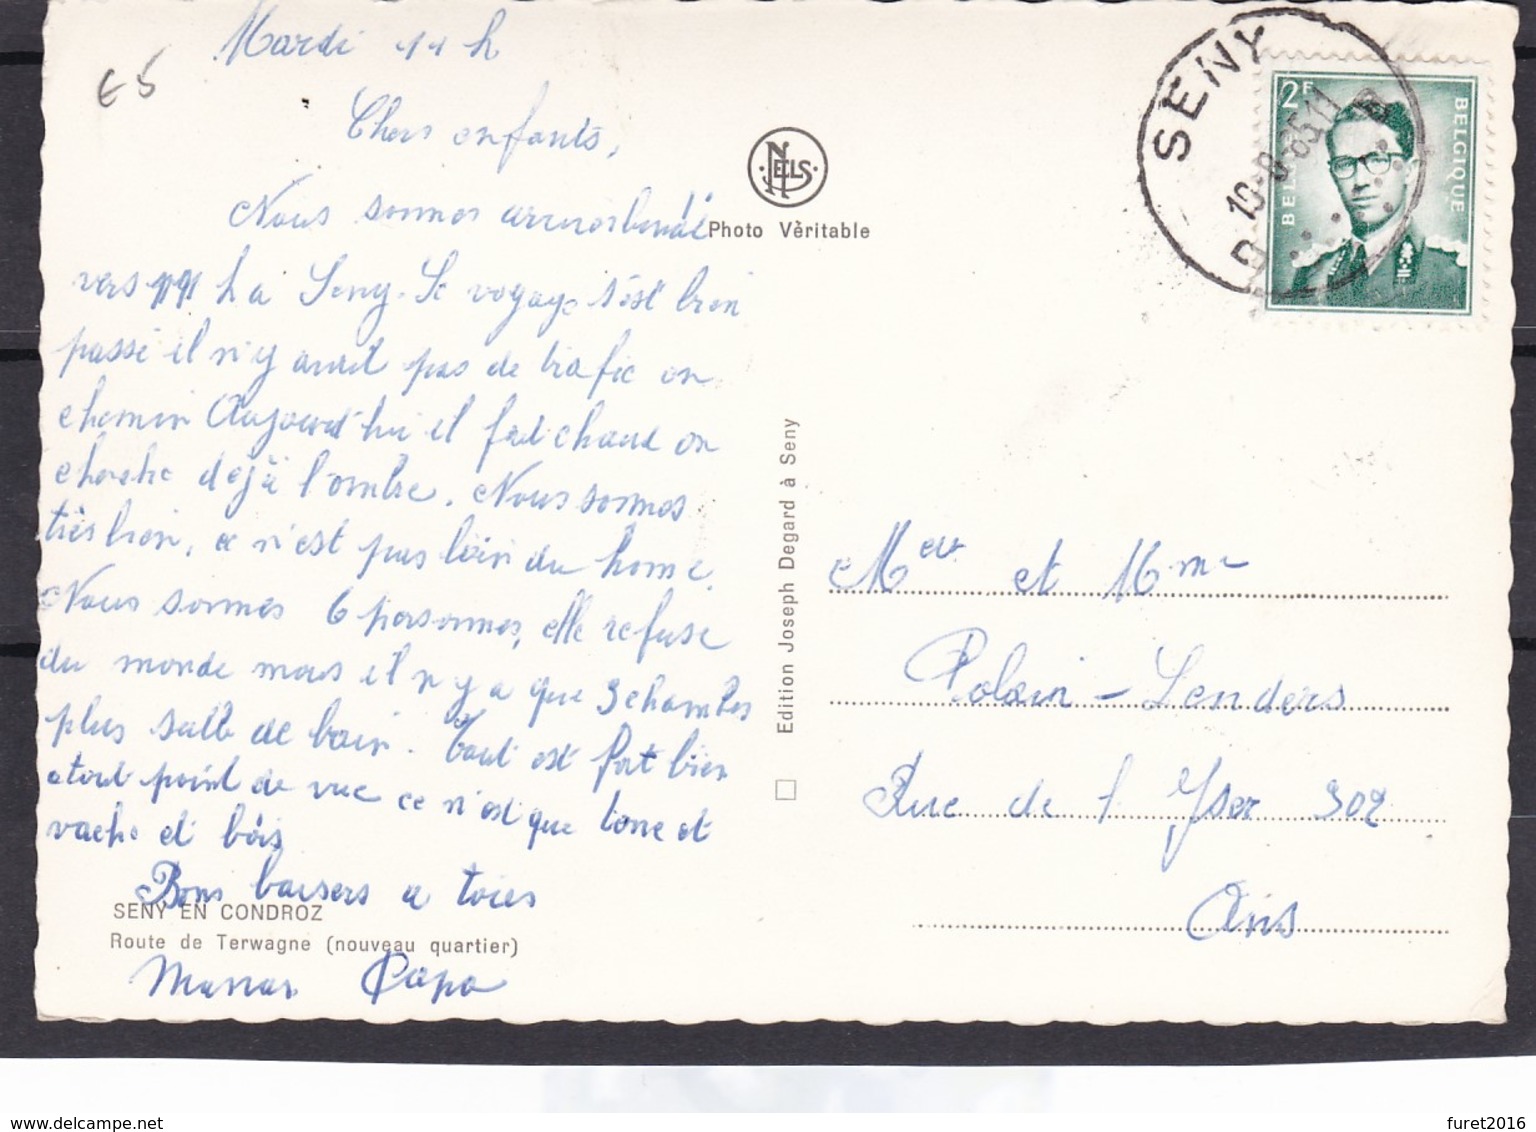 Mardi 11 h
€5
Chers enfants,
Nous sommes
vers h a Seny. Le voyage s'est bien
passé il n'y avait pas de trafic en
chemin Aujourd'hui il fait chaud on
cherche dejà l'ombre. Nous sommes
très bien, ce n'est pas loin du home.
Nous sommes 6 personnes, elle refuse
du monde mais il n'y a que 3 chambres
plus salle de bain. Tout est fort bien
a tout point de vue ce n'est que terre et
vache et bois
Bons baisers a tous
Maman Papa
SENY EN CONDROZ
Route de Terwagne (nouveau quartier)
NELS
Photo Vèritable
Edition Joseph Degard à Seny
SENY
2F
BELGIQUE
Meur et Mme
Polain-Lenders
Rue de l Yser 302
Ans
www.delcampe.net
furet2016